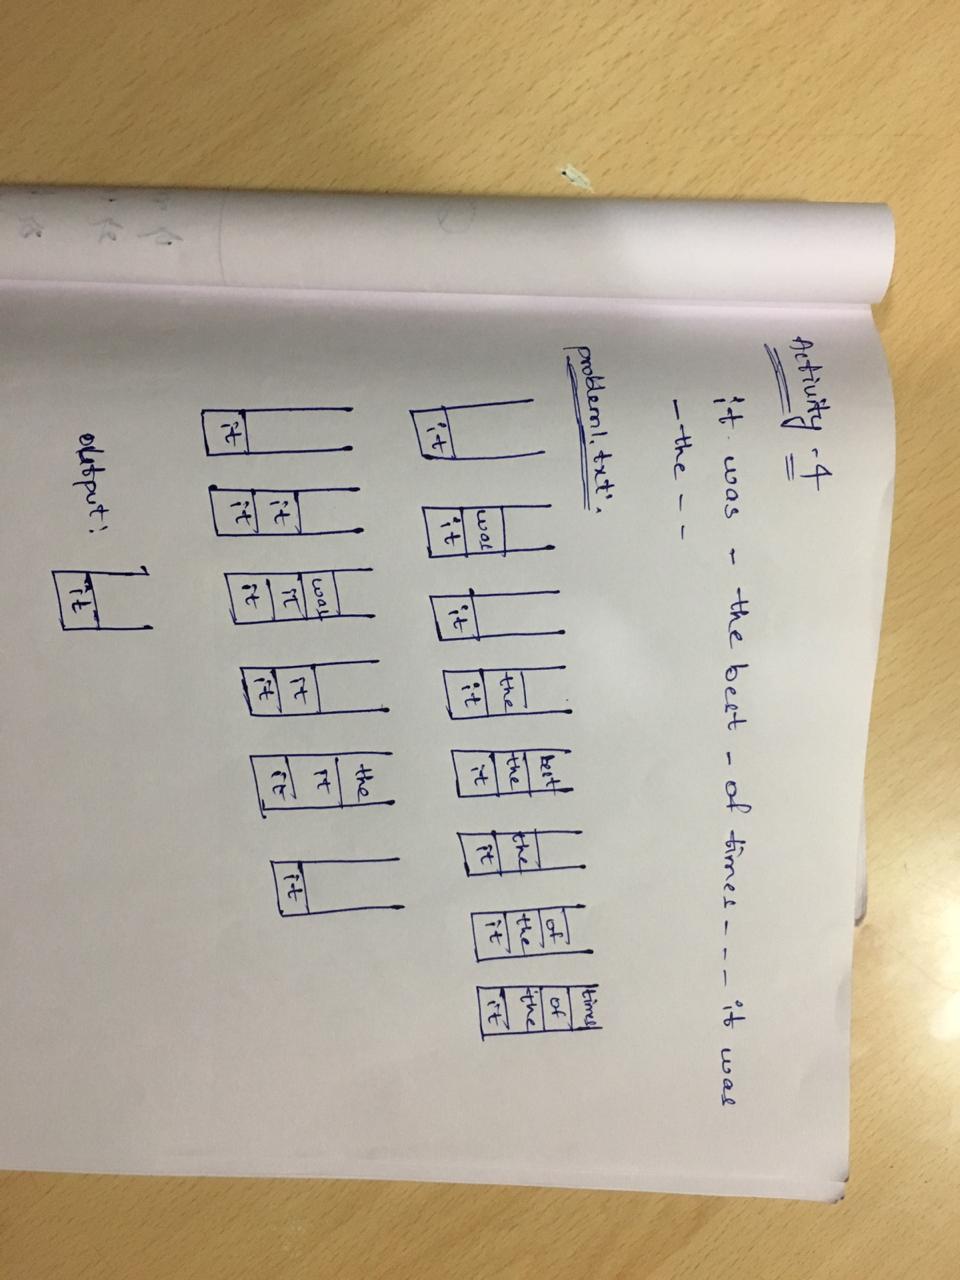 Activity - 4
it was - the best - of times - - - it was
- the - -
problem1.txt:
it
was it
it
the it
best the it
the it
of the it
times of the it
it
it it
was it it
it it
the it it
it
output:
it